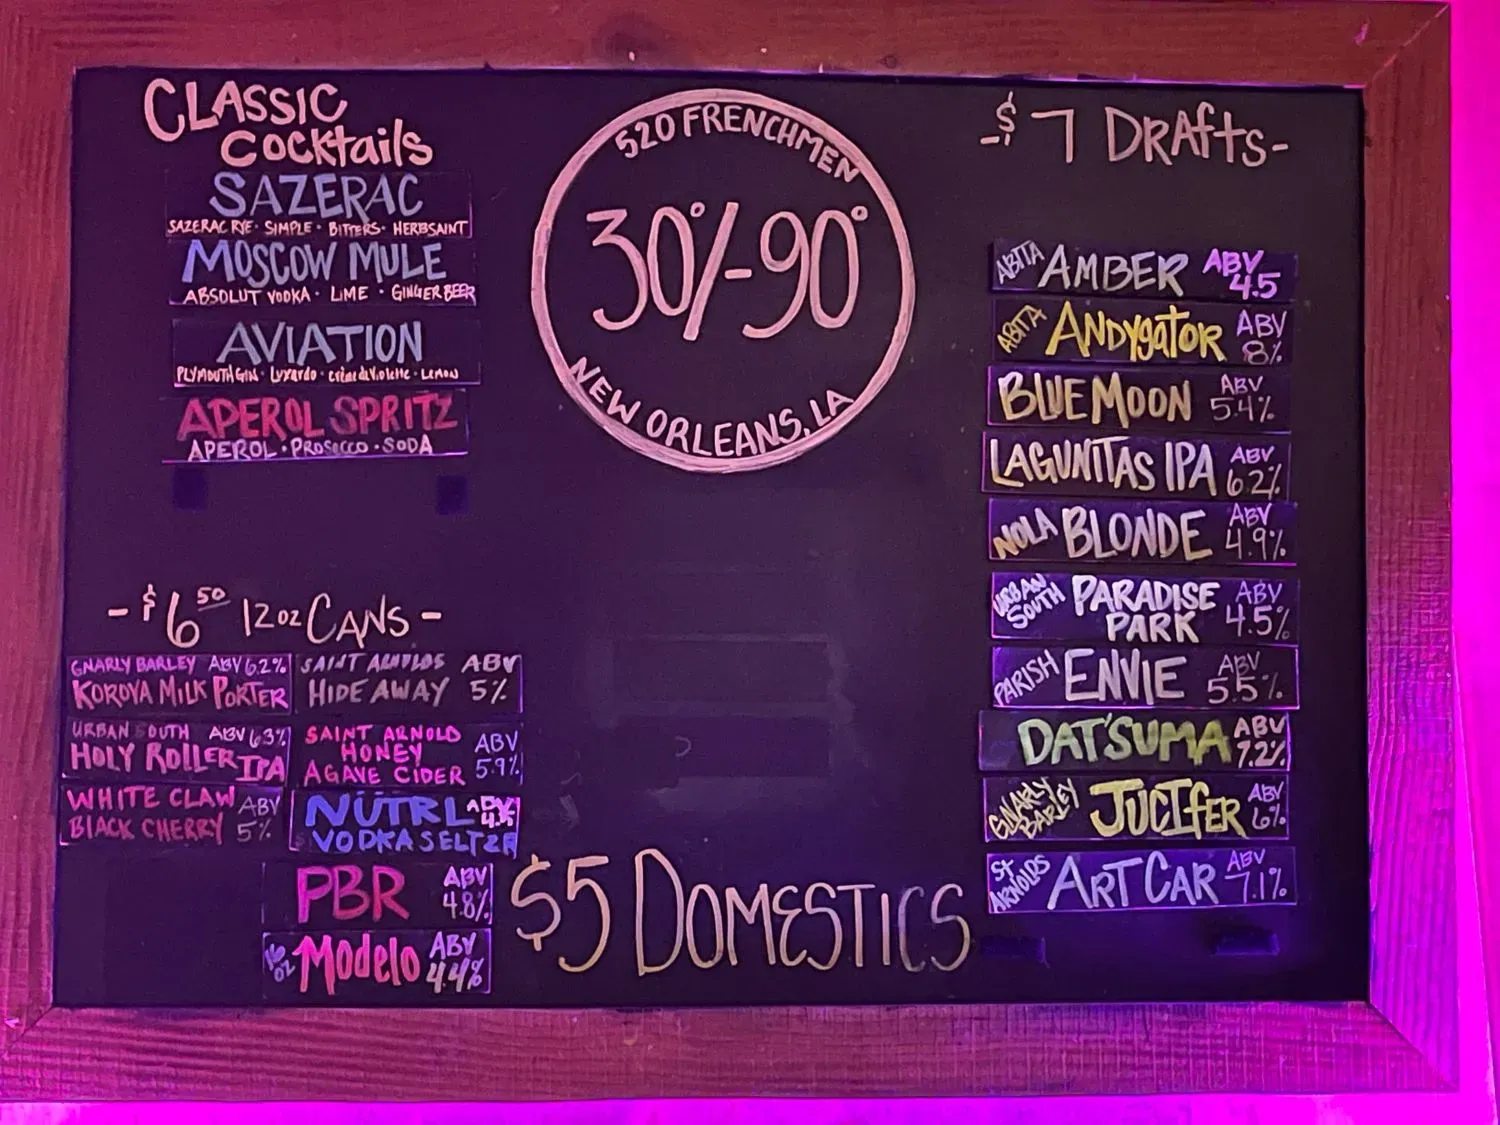 CLASSIC
COCKTAILS
SAZERAC
SAZERAC RYE · SIMPLE · BITTERS · HERBSAINT
MOSCOW MULE
ABSOLUT VODKA · LIME · GINGER BEER
AVIATION
PLYMOUTH GIN · Luxardo · crème de Violette · LEMON
APEROL SPRITZ
APEROL · PROSECCO · SODA
520 FRENCHMEN
30°/-90°
NEW ORLEANS, LA
-$7 DRAfTS-
ABITA AMBER ABV 4.5
ABITA ANDYgATOR ABV 8%
BLUE MOON ABV 5.4%
LAGUNITAS IPA ABV 6.2%
NOLA BLONDE ABV 4.9%
URBAN SOUTH PARADISE PARK ABV 4.5%
PARISH ENVIE ABV 5.5%
DAT'SUMA ABV 7.2%
GNARLY BARLEY JUCIfER ABV 6%
St ARNOLDS ART CAR ABV 7.1%
-$6.50 12oz CANS-
GNARLY BARLEY ABV 6.2%
KOROVA MILK PORTER
SAINT ARNOLDS ABV
HIDE AWAY 5%
URBAN SOUTH ABV 6.3%
HOLY ROLLER IPA
SAINT ARNOLD
HONEY
AGAVE CIDER ABV 5.9%
WHITE CLAW ABV
BLACK CHERRY 5%
NÜTRL ABV
VODKA SELTZER
PBR ABV 4.8%
16 oz Modelo ABV 4.4%
$5 DOMESTICS